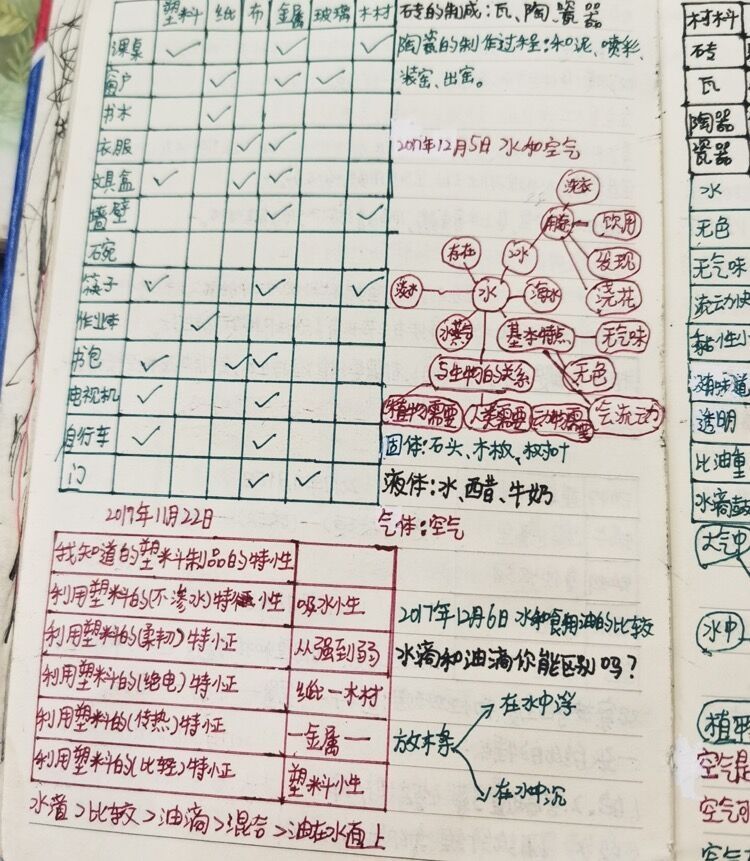 塑料 纸 布 金属 玻璃 木材
课桌 ✓ ✓ ✓
窗户 ✓ ✓ ✓
书本 ✓
衣服 ✓ ✓
文具盒 ✓ ✓ ✓
墙壁 ✓ ✓
石碗
筷子 ✓ ✓ ✓
作业本 ✓
书包 ✓ ✓ ✓
电视机 ✓ ✓
自行车 ✓ ✓
门 ✓ ✓
2017年11月22日
我知道的塑料制品的特性
利用塑料的(不渗水)特性 吸水性
利用塑料的(柔韧)特征 从强到弱
利用塑料的(绝电)特征 纸—木材
利用塑料的(传热)特征 —金属—
利用塑料的(比轻)特征 塑料小性
水滴>比较>油滴>混合>油在水面上
砖的制成:瓦、陶、瓷器
陶瓷的制作过程:和泥、喷彩、
装窑、出窑。
2017年12月5日 水和空气
洗衣
饮用
存在
发现
浇花
水
海水
基本特点
无气味
与生物的关系
无色
植物需要
人类需要
动物需要
会流动
固体:石头、木板、树叶
液体:水、醋、牛奶
气体:空气
2017年12月6日 水和食用油的比较
水滴和油滴你能区别吗?
在水中浮
在水中沉
材料
砖
瓦
陶器
瓷器
水
无色
无气味
透明
比油重
水滴鼓
大气中
水中
空气是